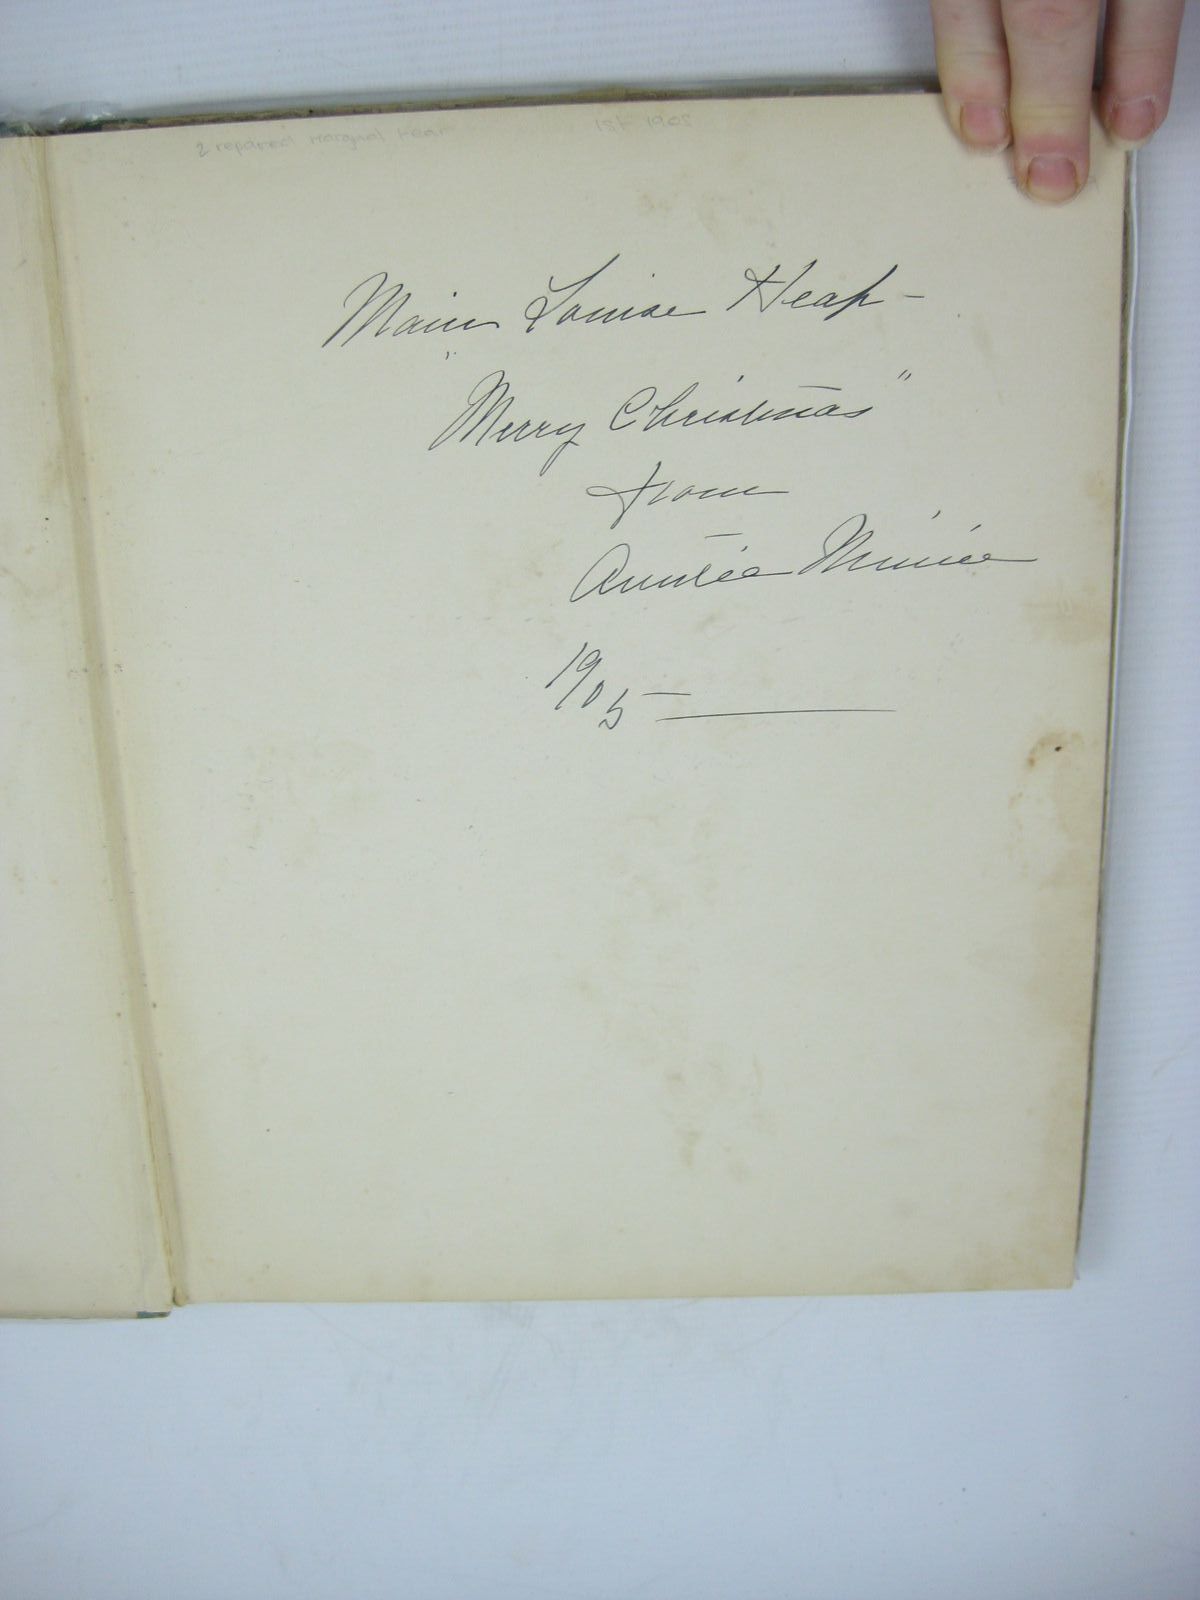 2 repaired marginal tear 1st 1905
Louise Heap -
"Merry Christmas"
from
Auntie Minnie
1905